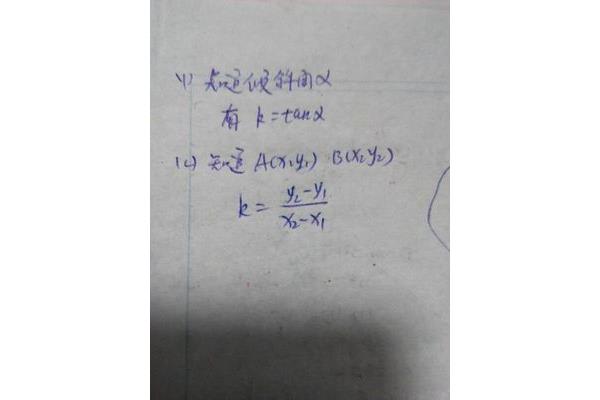 (1) 知道倾斜角α
有 k=tanα
(2) 知道 A(x₁y₁) B(x₂y₂)
k = \frac{y₂-y₁}{x₂-x₁}